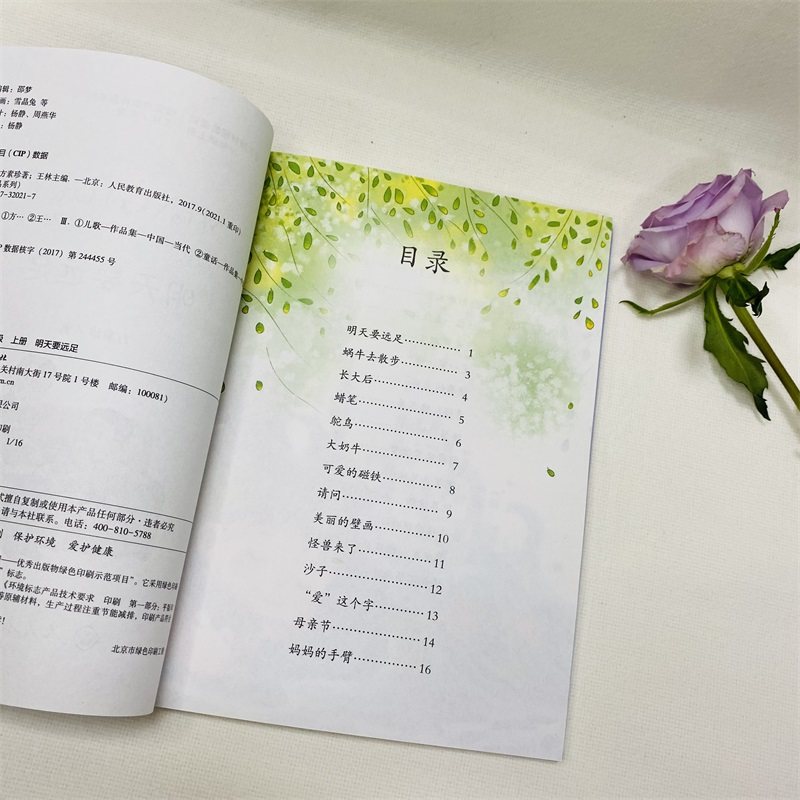 编辑：邵梦
画：雪晶兔 等
计：杨静、周燕华
：杨静
目（CIP）数据
方素珍著；王林主编. —北京：人民教育出版社，2017.9（2021.1重印）
品系列）
7-32021-7
①方… ②王… Ⅲ. ①儿歌—作品集—中国—当代 ②童话—作品集
P数据核字（2017）第244455号
级 上册 明天要远足
社
关村南大街17号院1号楼 邮编：100081）
m.cn
限公司
印刷
1/16
式擅自复制或使用本产品任何部分·违者必究
请与本社联系。电话：400-810-5788
刷 保护环境 爱护健康
——优秀出版物绿色印刷示范项目”。它采用绿色印刷
”标志。
《环境标志产品技术要求 印刷 第一部分：平版印
等原辅材料，生产过程注重节能减排，印刷产品符合
！
北京市绿色印刷工程
目录
明天要远足…………………… 1
蜗牛去散步………………… 3
长大后…………………… 4
蜡笔…………………… 5
鸵鸟…………………… 6
大奶牛…………………… 7
可爱的磁铁……………… 8
请问…………………… 9
美丽的壁画………………10
怪兽来了…………………11
沙子……………………12
“爱”这个字………………13
母亲节…………………14
妈妈的手臂………………16